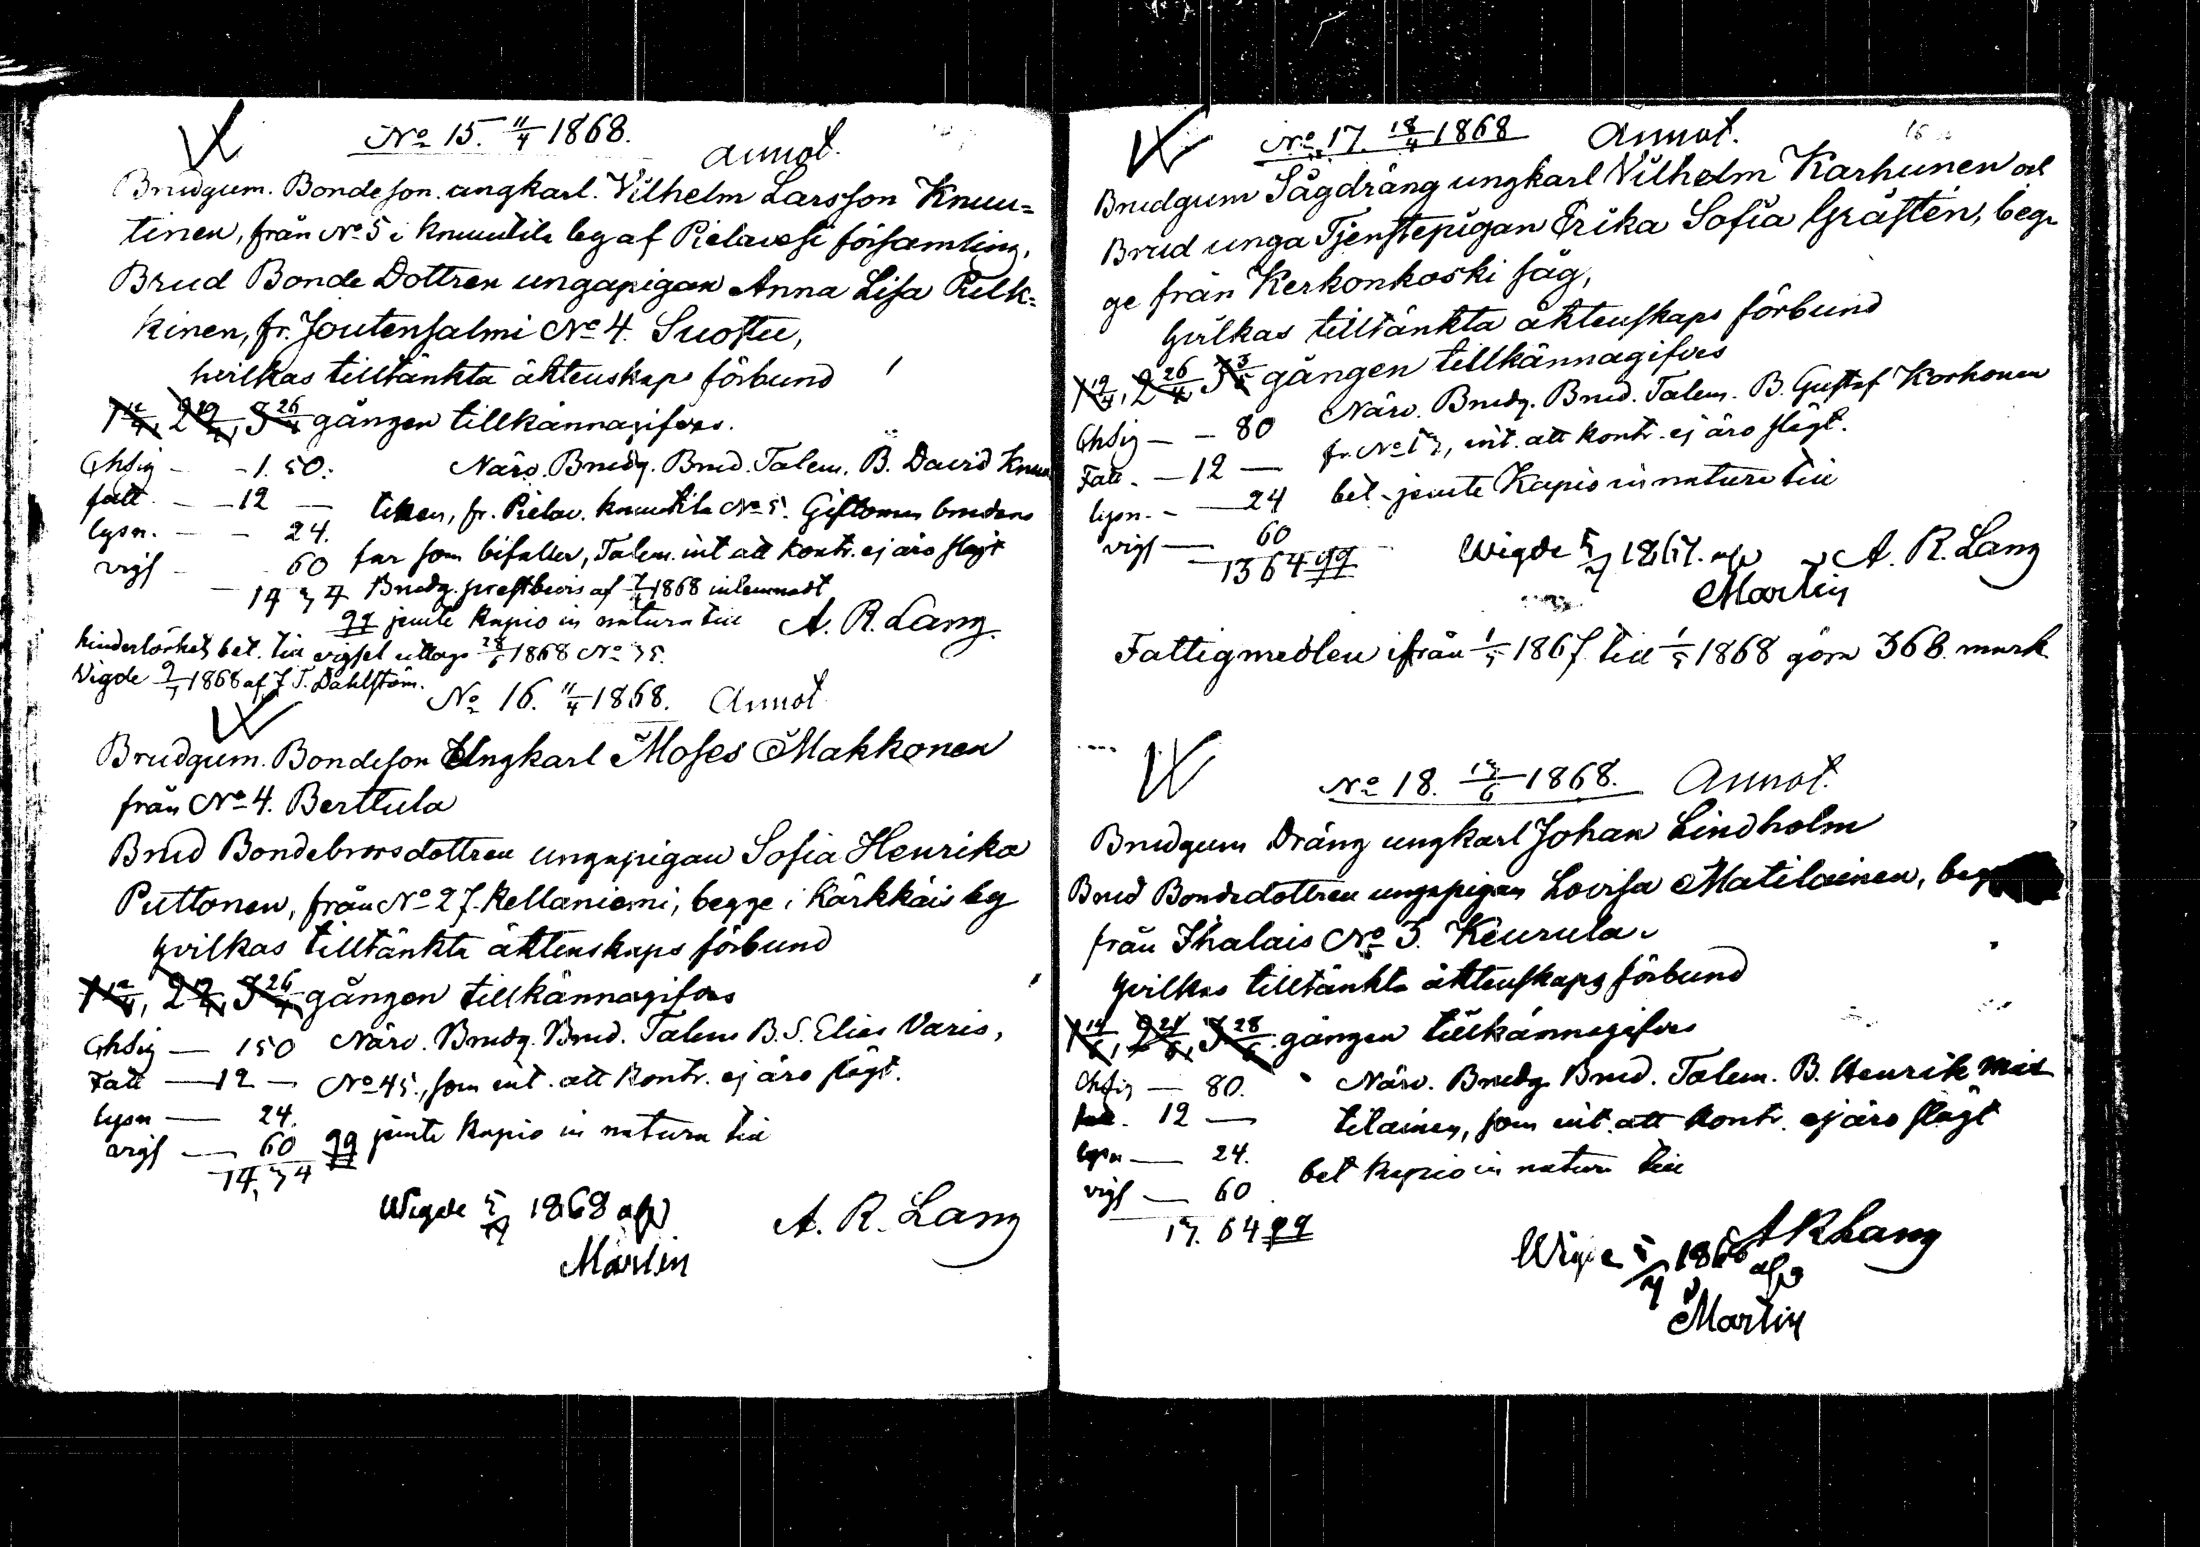 No 15. 11/4 1868.
Annot.
Brudgum. Bondeson ungkarl. Vilhelm Larsson Knuu=
tinen, från No 5 i Knuutila by af Pielavesi församling,
Brud Bonde Dottren ungapigan Anna Lisa Pulk=
kinen, fr. Joutensalmi No 4. Suostu,
hvilkas tilltänkta äktenskaps förbund
1 12/4, 2 19/4, 3 26/4 gången tillkännagifves.
Chsig - - 1. 50. Närv. Brudg. Brud. Talem. B. David Knuu
fatt - - 12 - tinen, fr. Pielav. Knuutila No 5. Giftoman brudens
lysn. - - 24. far som bifaller, Talem. int att kontr. ej äro slägt
vigs - 60 Brudg. prestbevis af 7/4 1868 inlemnadt
14 74 qq jemte Kapio in natura till A. R. Lang.
hinderlöshets bet. till vigsel uttogs 28/6 1868 No 35.
Vigde 9/7 1868 af J. T. Dahlström.
No 16. 11/4 1868. Annot
Brudgum. Bondeson Ungkarl Moses Makkonen
från No 4. Berttula
Brud Bondebrorsdottren ungapigan Sofia Henrika
Puttonen, från No 27. Kellaniemi, begge i Kärkkäis by
hvilkas tilltänkta äktenskaps förbund
1 12/4, 2 19/4, 3 26/4 gången tillkännagifves
Chsig — 150 Närv. Brudg. Brud. Talem B. S. Elias Varis,
Fatt — 12 — No 45., som int. att kontr. ej äro slägt.
lysn — 24.
vigs — 60 qq jemte Kapio in natura till
14, 74
Wigde 5/7 1868 af A. R. Lang
Martin
No 17. 18/4 1868 Annot.
Brudgum Sågdräng ungkarl Vilhelm Karhunen och
Brud unga Tjenstepigan Erika Sofia Gråsten, beg-
ge från Kerkonkoski såg,
hvilkas tilltänkta äktenskaps förbund
1 19/4, 2 26/4 3 3/5 gången tillkännagifves
Chsig — - 80 Närv. Brudg. Brud. Talem. B. Gustaf Korhonen
Fatt. - 12 — fr. No 17, int. att kontr. ej äro slägt.
lysn. - — 24 bet. jemte Kapio in natura till
vigs — 60
13 64 qq Wigde 5/7 1867. af A. R. Lang
Martin
Fattigmedlen ifrån 1/5 1867 till 1/5 1868 göra 368. mark
No 18. 13/6 1868. Annot.
Brudgum Dräng ungkarl Johan Lindholm
Brud Bondedottren ungapigan Lovisa Matilainen, beg
från Ihalais No 3. Keurula.
hvilkas tilltänkta äktenskaps förbund
1 14/6, 2 21/6, 3 28/6 gången tillkännagifves
Chsig — 80. Närv. Brudg. Brud. Talem. B. Henrik Mat
fatt. 12 — tilainen, som int. att kontr. ej äro slägt
lysn — 24. bet Kapio in natura till
vigs — 60
13. 64 qq
A R Lang
Wigde 5/7 1868 af
Martin